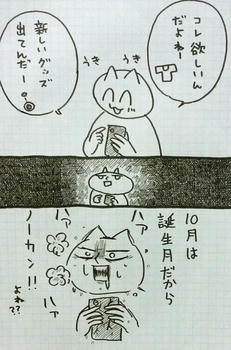 コレ欲しいん
だよねー
うき
うき
新しいグッズ
出てんだー!
10月は
誕生月だから
ノーカン!!
よね??
ハァ
ハァ
ハァ